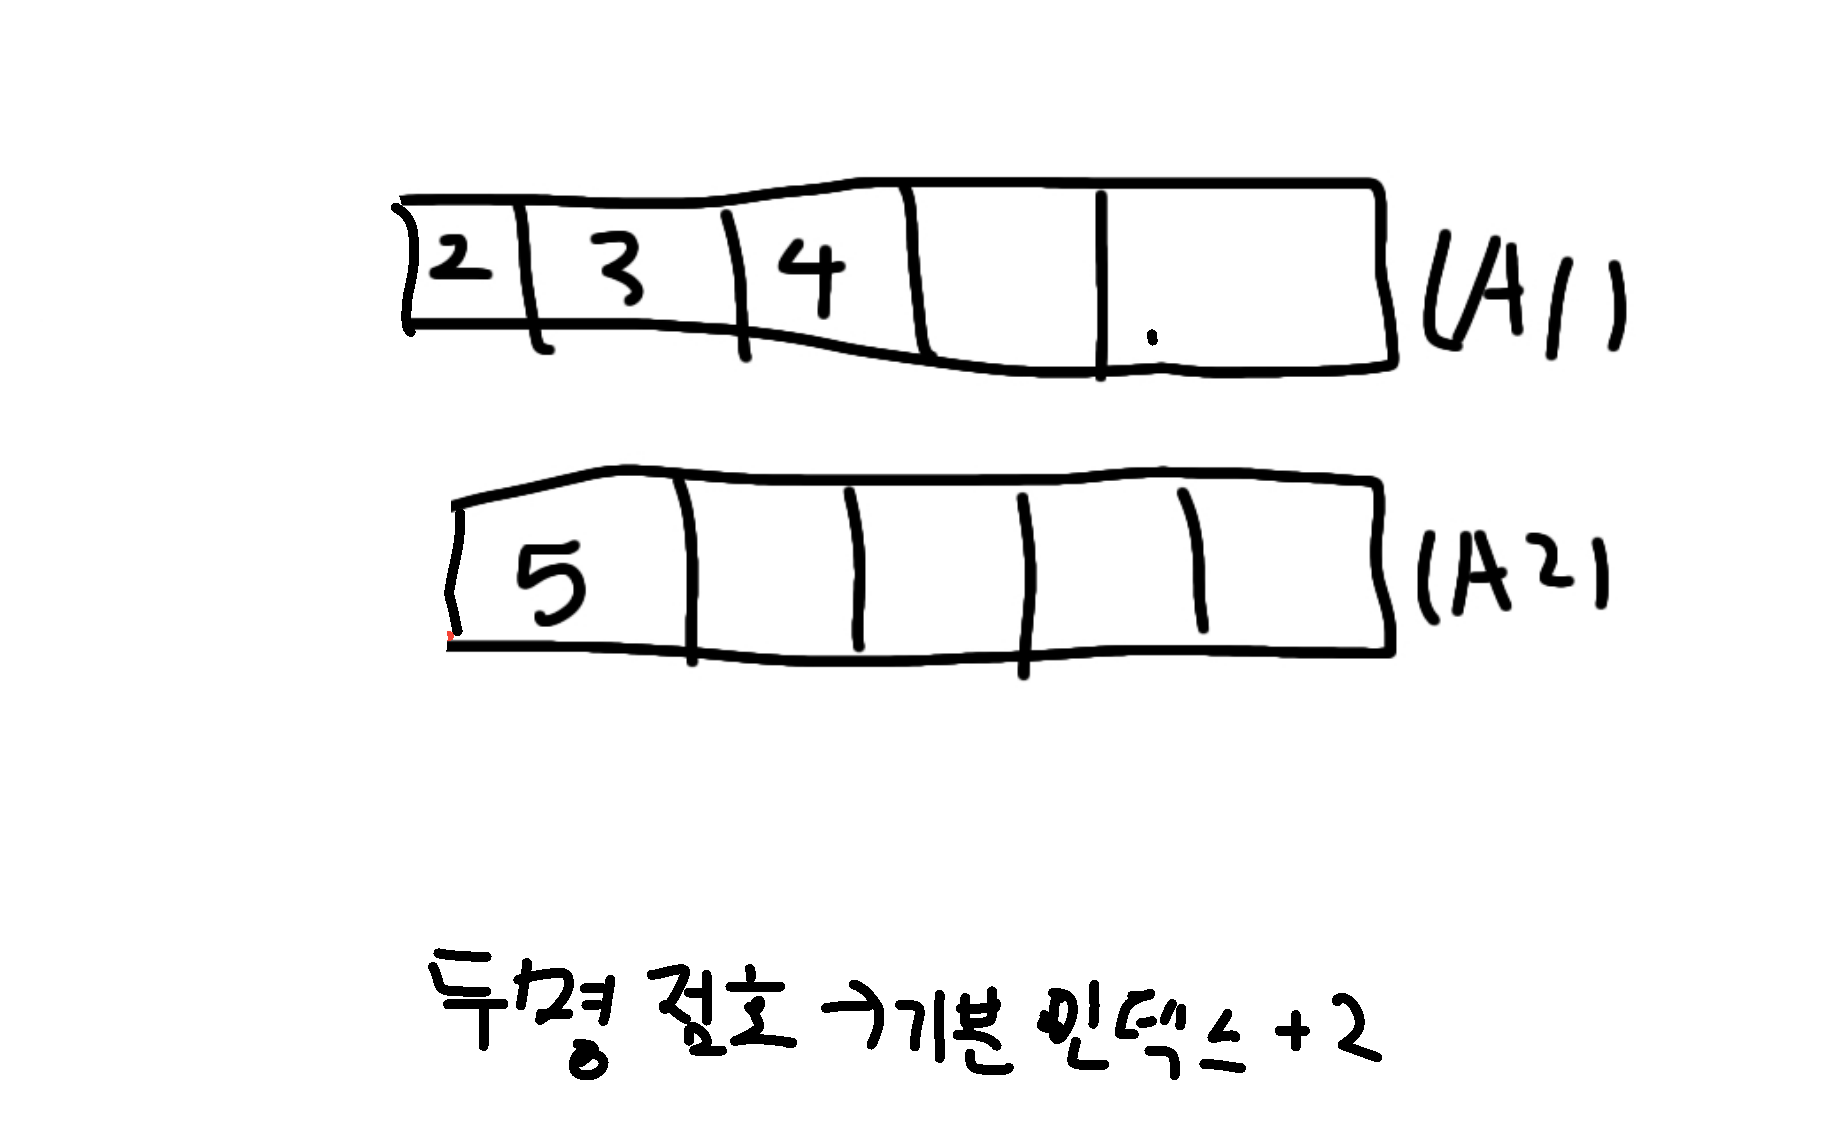 2 3 4 (A1)
5 (A2)
두명 점호 → 기본 인덱스 + 2